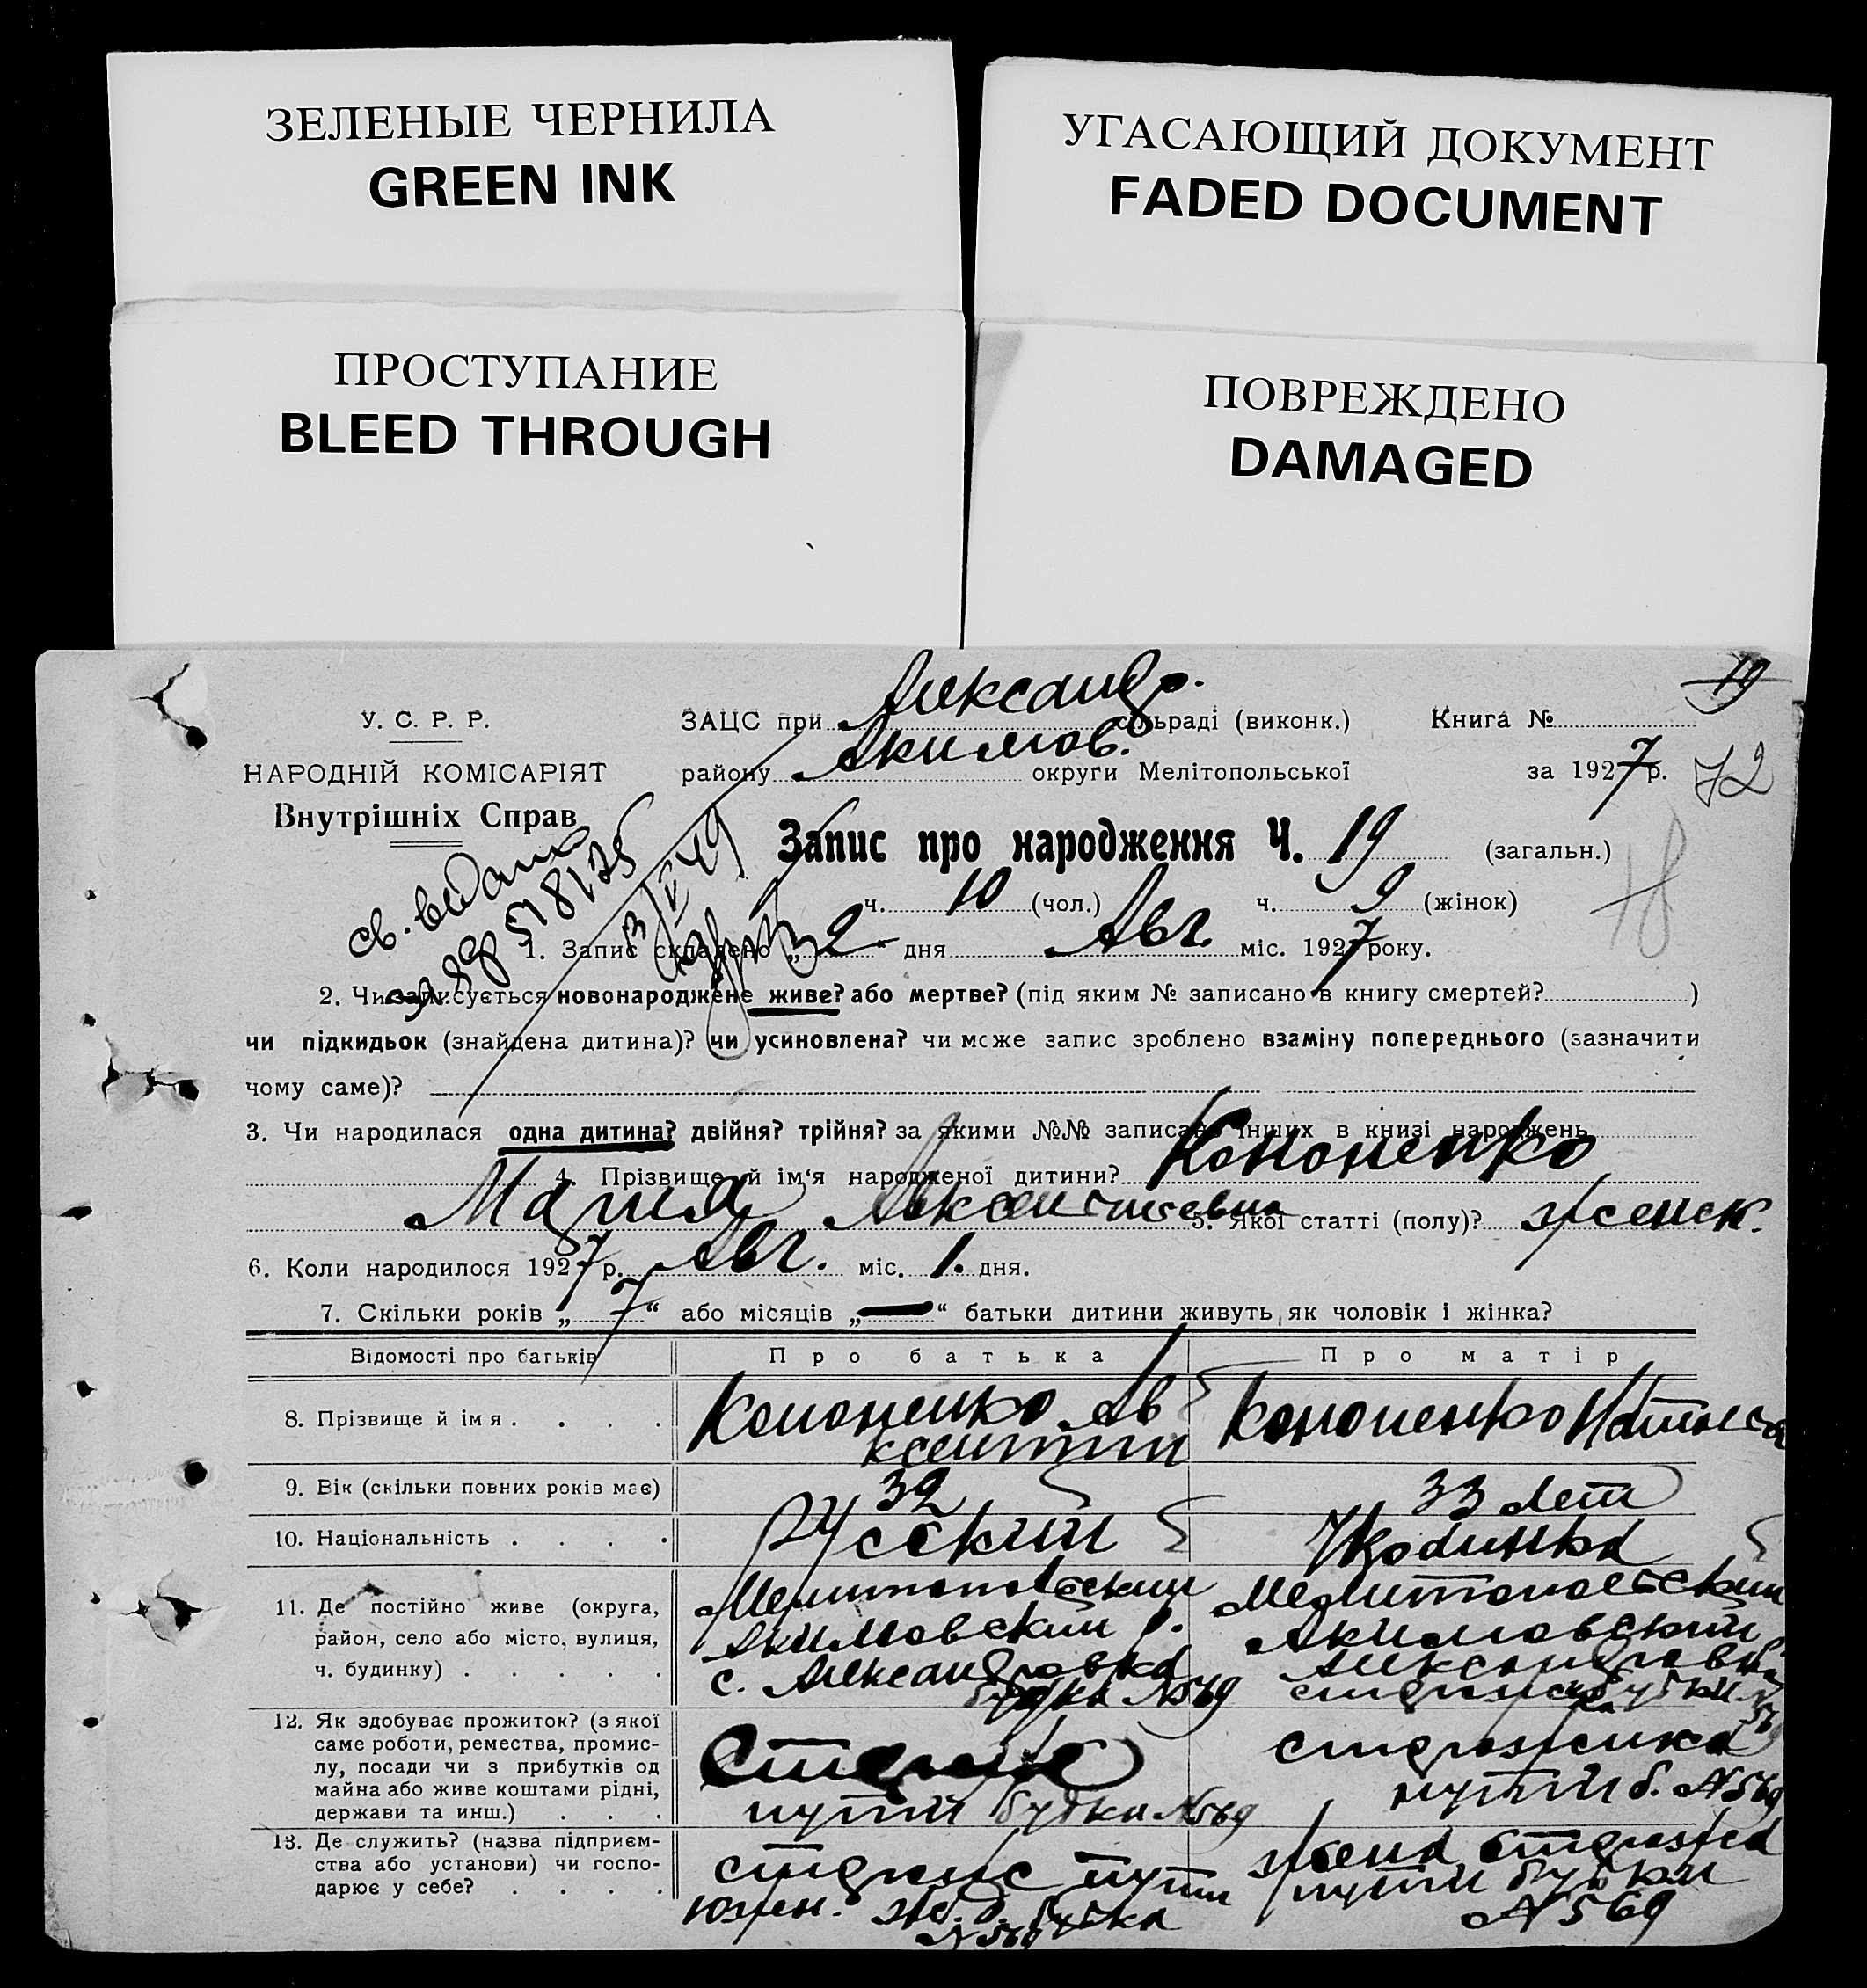 ЗЕЛЕНЫЕ ЧЕРНИЛА
GREEN INK
УГАСАЮЩИЙ ДОКУМЕНТ
FADED DOCUMENT
ПРОСТУПАНИЕ
BLEED THROUGH
ПОВРЕЖДЕНО
DAMAGED
19
У. С. Р. Р.
НАРОДНІЙ КОМІСАРІЯТ
Внутрішніх Справ
ЗАЦС при Александр. сільраді (виконк.) Книга №
району Акимов. округи Мелітопольської за 1927 р.
72
18
св. видано
Запис про народження Ч. 19 (загальн.)
ч. 10 (чол.) ч. 9 (жінок)
1. Запис складено „2“ дня Авг. міс. 1927 року.
2. Чи записується новонароджене живе? або мертве? (під яким № записано в книгу смертей? )
чи підкидьок (знайдена дитина)? чи усиновлена? чи може запис зроблено взаміну попереднього (зазначити
чому саме)?
3. Чи народилася одна дитина? двійня? трійня? за якими №№ записано інших в книзі народжень
4. Прізвище й ім‘я народженої дитини? Кононенко
Мария Авксентиевна 5. Якої статті (полу)? женск.
6. Коли народилося 1927 р. Авг. міс. 1. дня.
7. Скільки років „7“ або місяців „—“ батьки дитини живуть як чоловік і жінка?
Відомості про батьків Про батька Про матір
8. Прізвище й імя . . . .
Кононенко Ав
ксентий
Кононенко Наталья
9. Вік (скільки повних років має)
32
33 лет
10. Національність . . . .
Русский
Украинка
11. Де постійно живе (округа,
район, село або місто, вулиця,
ч. будинку) . . . . .
Мелитопольский
Акимовский р.
с. Александровка
будка №569
Мелитопольский
Акимовский
Александровка
12. Як здобуває прожиток? (з якої
саме роботи, ремества, промис-
лу, посади чи з прибутків од
майна або живе коштами рідні,
держави та инш.) . . .
Сторож
пути будка №569
сторожиха
пути б. №569
13. Де служить? (назва підприєм-
ства або установи) чи госпо-
дарює у себе? . . . .
сторож пути
Южн. ж.д. будка
№569
жена сторожа
пути будки
№569